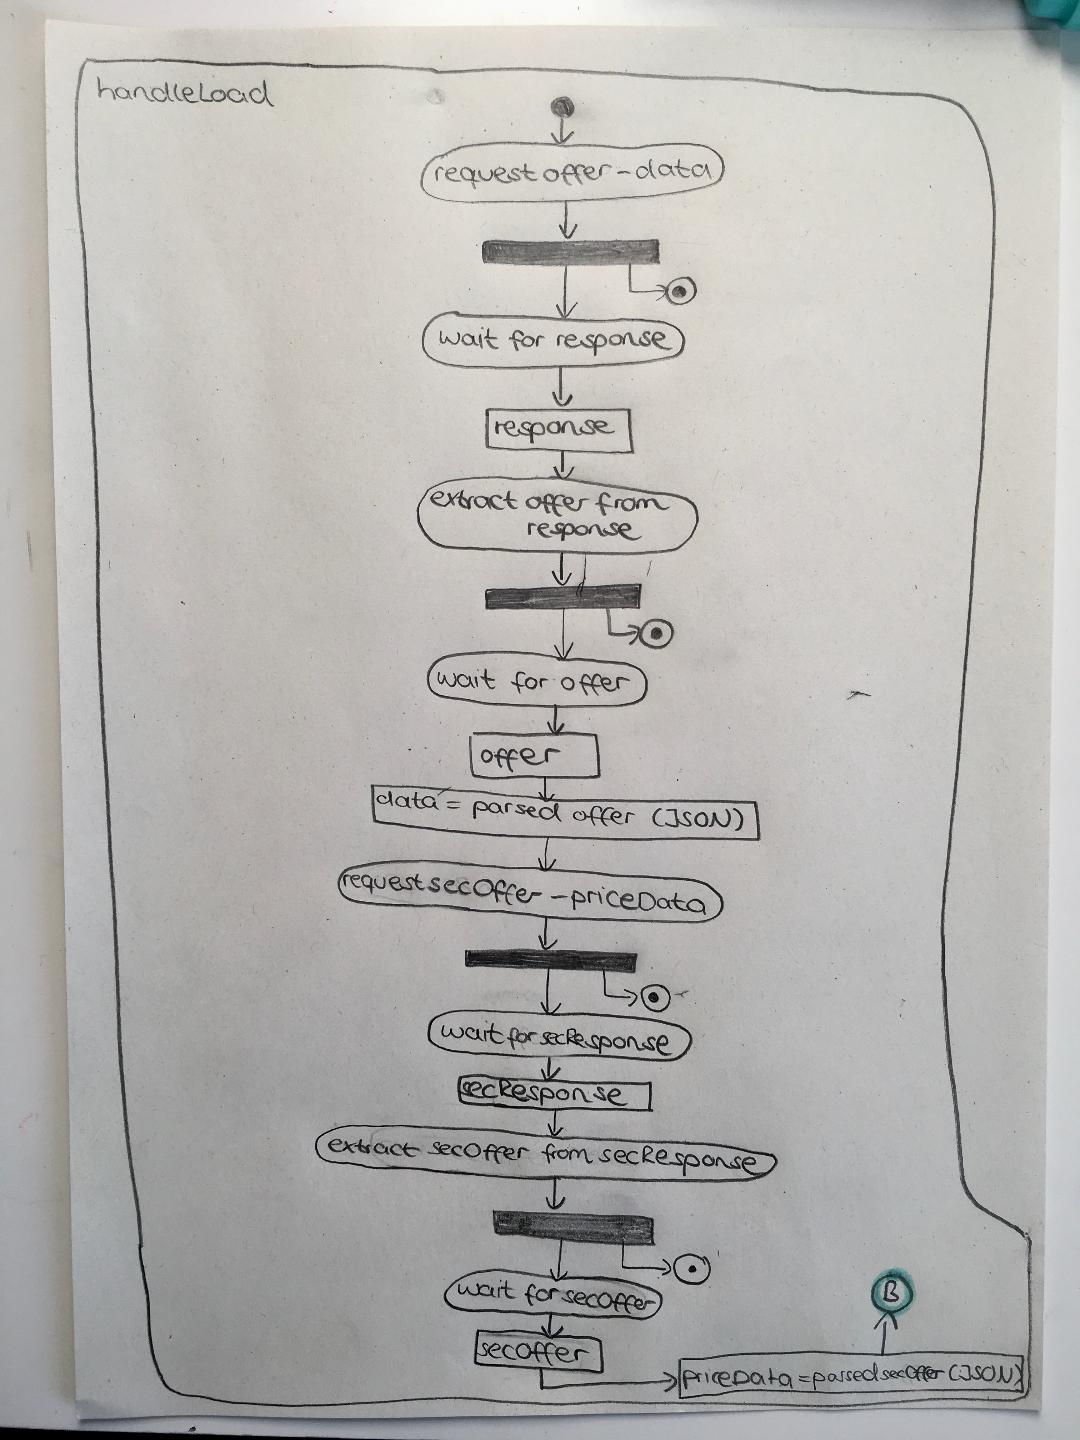 handleLoad
request offer - data
wait for response
response
extract offer from
response
wait for offer
offer
data = parsed offer (JSON)
request secOffer - priceData
wait for secResponse
secResponse
extract secOffer from secResponse
wait for secOffer
B
secOffer
priceData = parsed secOffer (JSON)